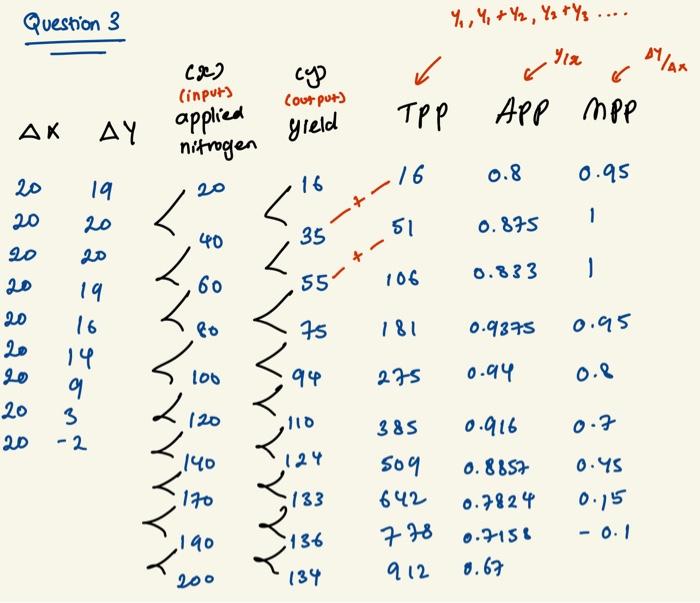 Question 3
Y1, Y1 + Y2, Y2 + Y3 ....
y/x
ΔY/Δx
(x) (y)
(input) (output)
ΔX ΔY applied nitrogen yield TPP APP MPP
20 19 20 16 + 16 0.8 0.95
20 20 40 35 + 51 0.875 1
20 20 60 55 106 0.833 1
20 19 80 75 181 0.9375 0.95
20 16 100 94 275 0.94 0.8
20 14 120 110 385 0.916 0.7
20 9 140 124 509 0.8857 0.45
20 3 170 133 642 0.7824 0.15
20 -2 190 136 778 0.7158 - 0.1
200 134 912 0.67